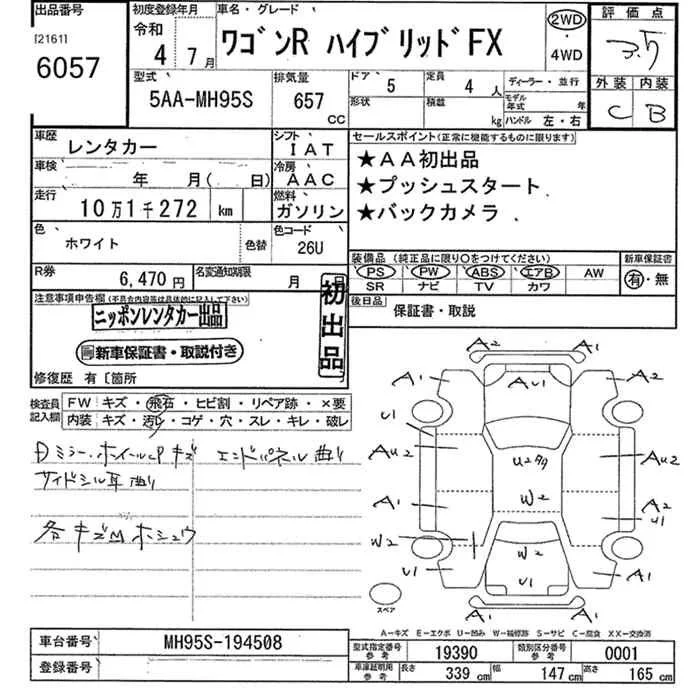 出品番号
[2161]
6057
初度登録年月
令和
4年 7月
車名・グレード
ワゴンR ハイブリッドFX
2WD
・
4WD
評価点
3.5
外装 内装
C B
型式
5AA-MH95S
排気量
657
CC
ドア
5
定員
4人
形状
積載
kg
ディーラー・並行
モデル年式 年
ハンドル 左・右
車歴
レンタカー
シフト
IAT
車検
年 月( 日)
冷房
AAC
走行
10万1千272 km
燃料
ガソリン
色
ホワイト
色替
色コード
26U
R券
6,470円
名変通知期限
月 日
セールスポイント(正常に機能するものに限ります)
★AA初出品
★プッシュスタート
★バックカメラ
装備品 (純正品に限り○をつけてください)
PS PW ABS エアB AW
SR ナビ TV カワ
新車保証書
有・無
後日品
保証書・取説
注意事項申告欄(不具合内容等は具体的に記入して下さい)
ニッポンレンタカー出品
新車保証書・取説付き
初出品
修復歴 有〔箇所
検査員記入欄
FW キズ・飛石・ヒビ割・リペア跡・×要
内装 キズ・汚レ・コゲ・穴・スレ・キレ・破レ
Dミラー.ホイールCPキズ エンドパネル曲り
サイドシル耳曲り
各キズMホシュウ
A2 A2
A1 AU1 A2
U1
AU2 AU2
U2
W2
A1 A2
U1
W2 W2
U1 U1 A1
A1 A1
スペア
A-キズ E-エクボ U-凹み W-補修跡 S-サビ C-腐食 XX-交換済
車台番号
MH95S-194508
登録番号
型式指定番号 参考
19390
類別区分番号 参考
0001
車庫証明用 参考
長さ 339 cm 幅 147 cm 高さ 165 cm